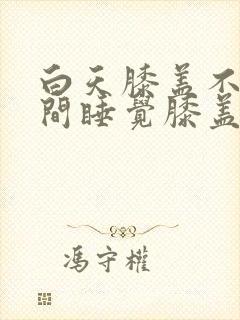 白天膝盖不
間睡覺膝盖
馮守權